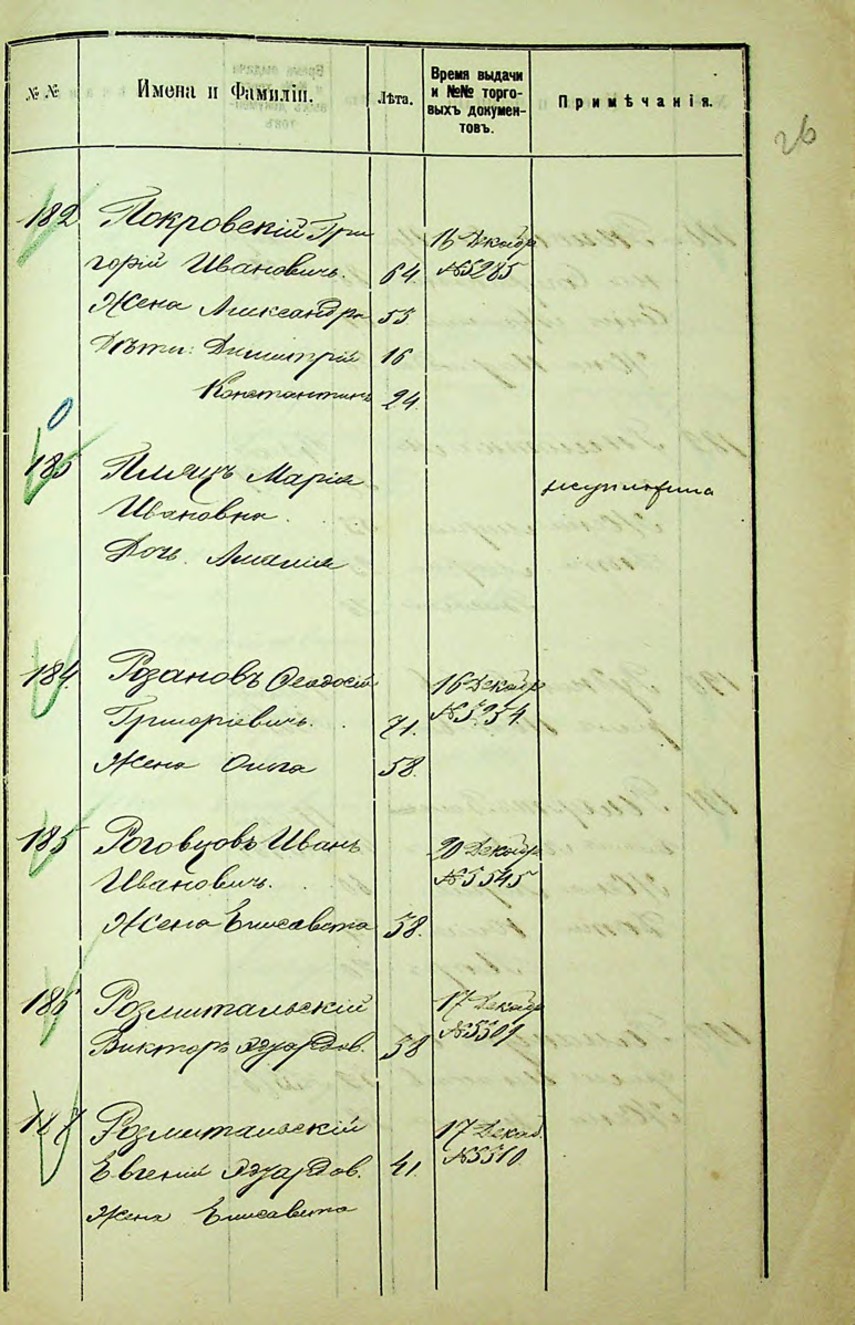 № №
Имена и Фамиліи.
Лѣта.
Время выдачи
и №№ торго-
выхъ докумен-
товъ.
Примѣчанія.
26
182 Покровскій Гри
горій Ивановичъ. 64 16 Декабр
№5285
Жена Александра 55
Дѣти: Димитрій 16
Константинъ 24
0
183 Пляцъ Марія
Ивановна
Дочь Амалія
184. Розановъ Ѳеодосій 16 Декабр
Григоріевичъ. 71. №5254.
Жена Ольга 58.
185 Роговцовъ Иванъ 20 Декабр
Ивановичъ. №5545
Жена Елисавета 58.
186 Розмитальскій 17 Декабр
Викторъ Эдуардов. 58 №5509
187 Розмитальскій 17 Декаб.
Евгеній Эдуардов. 41. №5510.
Жена Елисавета